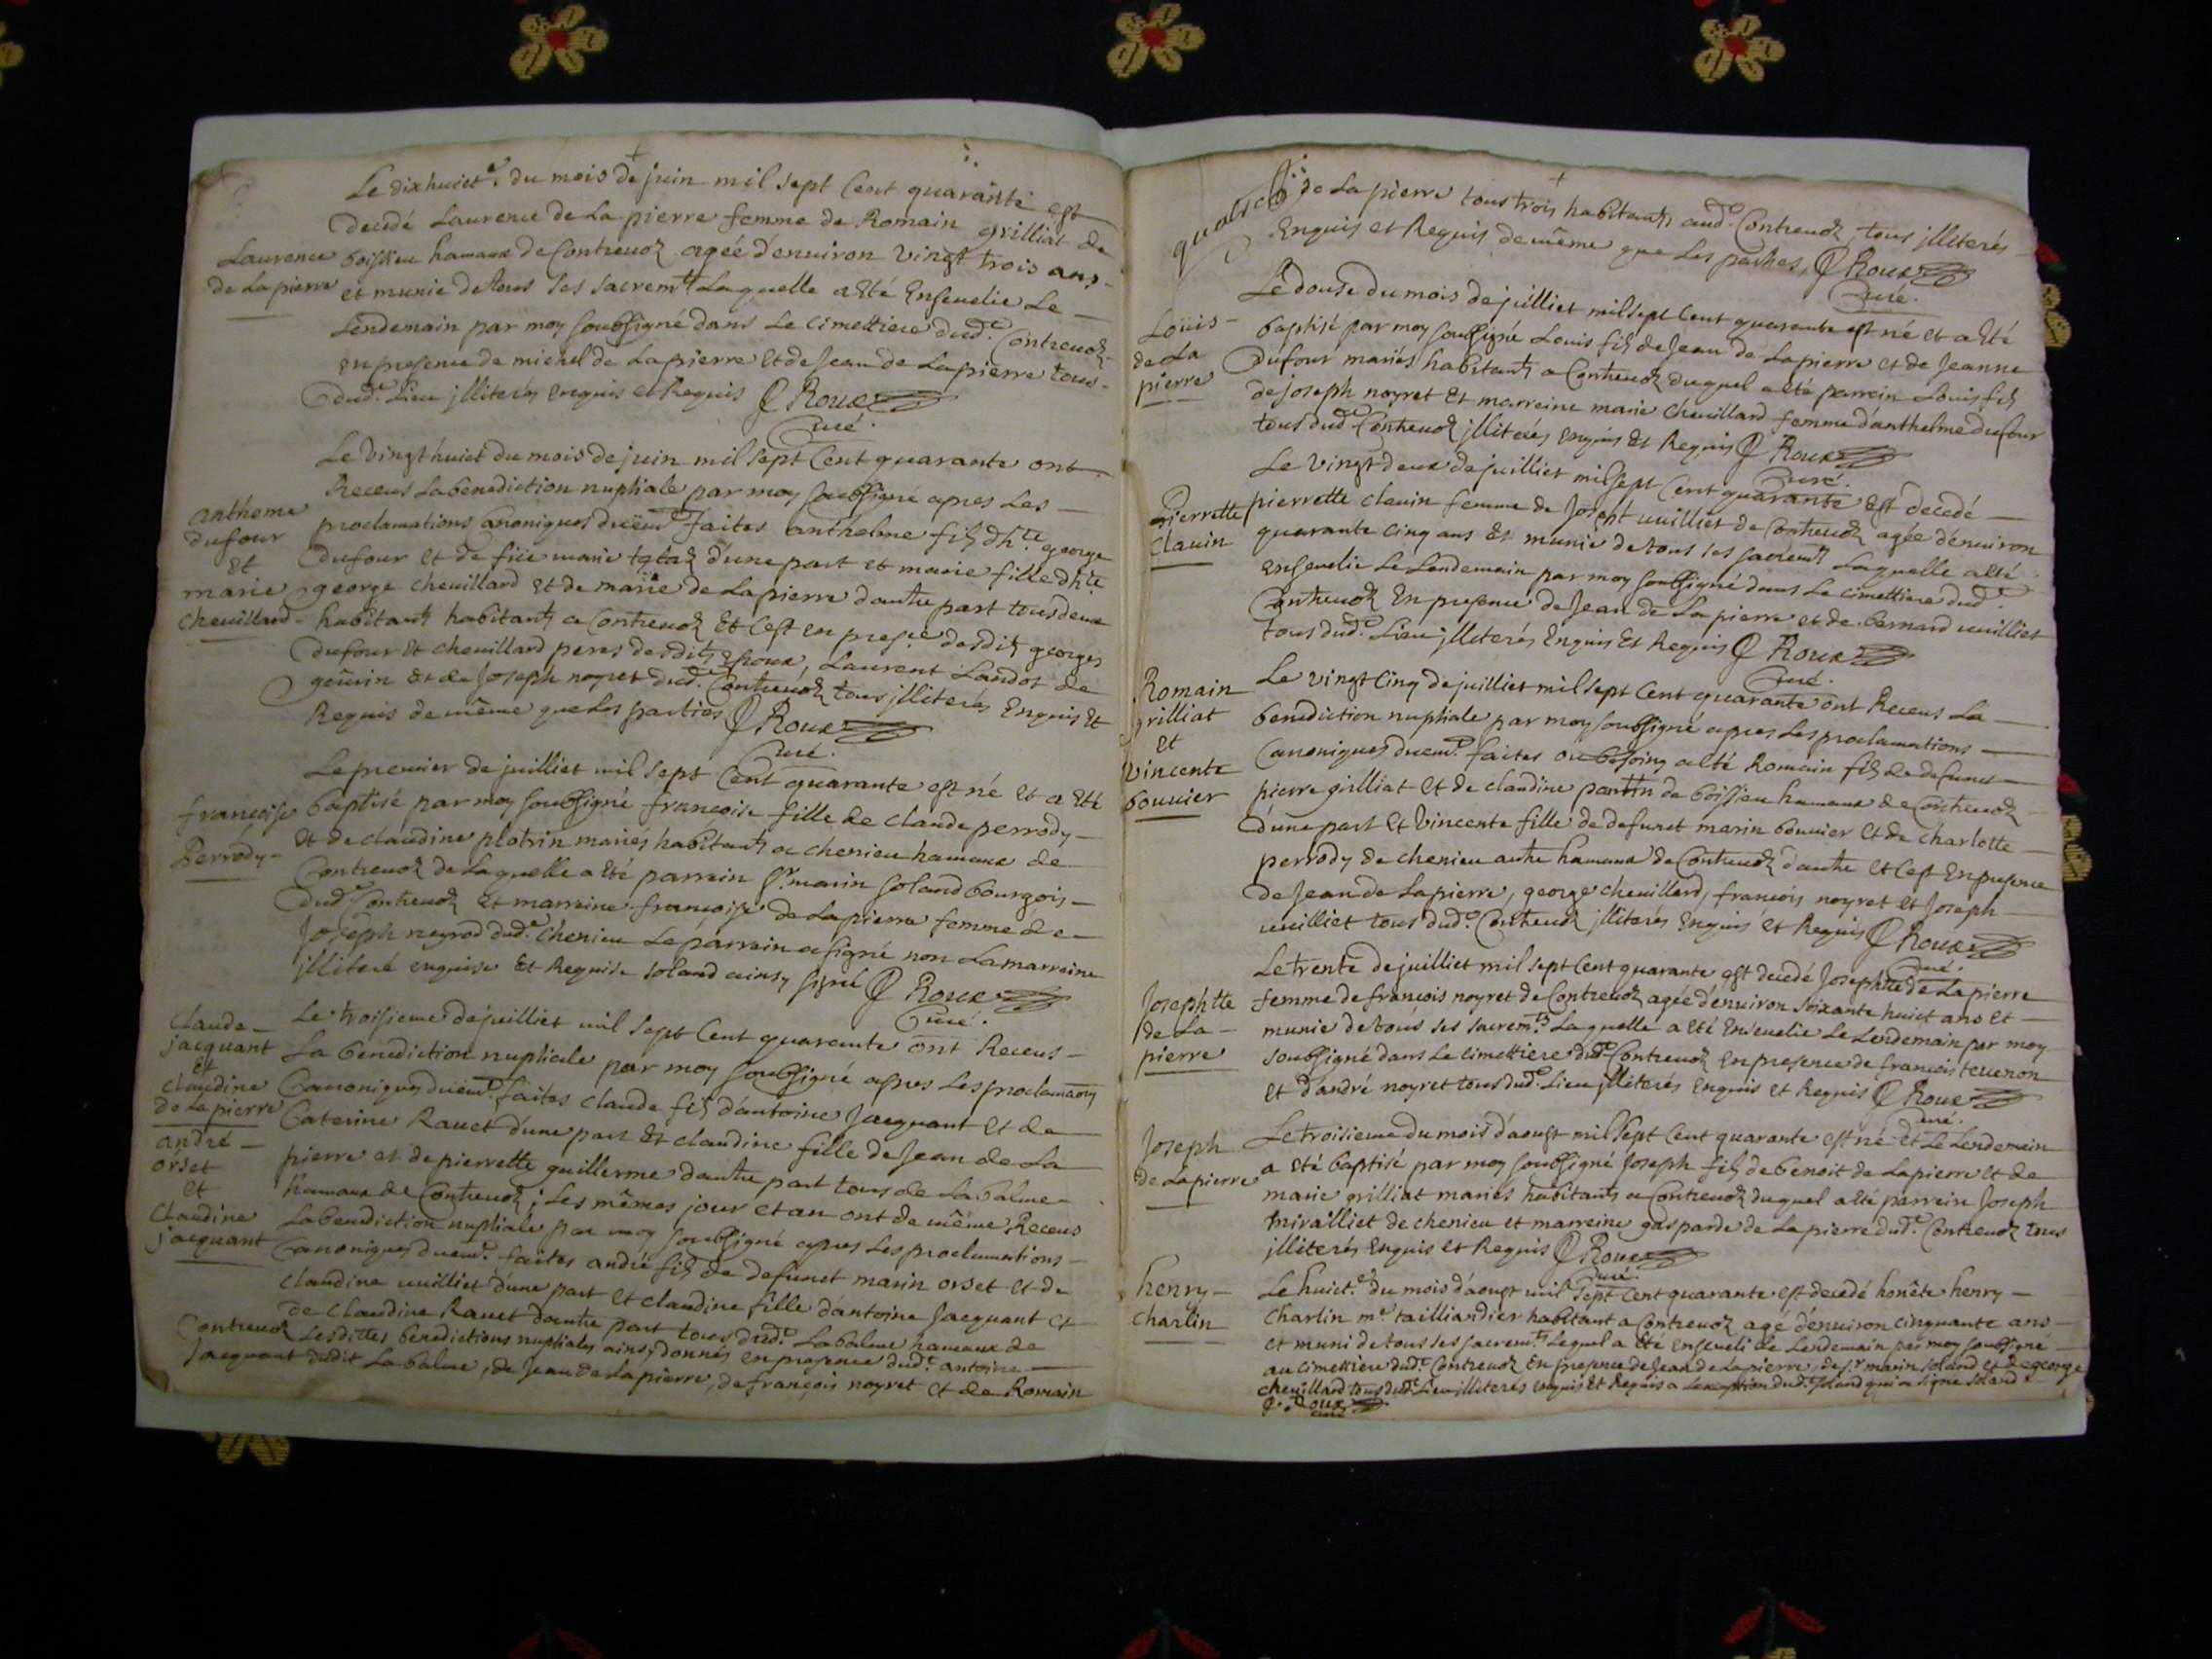 Le dixhuict.e du mois de juin mil sept Cent quarante est
decedé Laurence de La pierre femme de Romain grilliat de
Laurence de La pierre
boissieu hamaux de Contrevoz agée d'environ vingt trois ans
et munie de tous ses sacrem.ts Laquelle a Eté Ensevelie Le
Lendemain par moy soubsigné dans Le cimettiere dud.t Contrevoz
en presence de michel de Lapierre et de Jean de Lapierre tous
dud.t Lieu jlliterés enquis et Requis Roux
Curé.
Le vingt huict du mois de juin mil sept Cent quarante ont
Receus La benediction nuptiale par moy soubsigné apres Les
anthème dufour et marie chevillard
proclamations Canoniques düem.t faites anthelme fils d'h.te george
dufour et de marie d'une part et marie fille d'h.te
george chevillard et de marie de Lapierre d'autre part tous deux
habitants habitants a Contrevoz Et C'est en prese.ce desdits georges
dufour Et chevillard peres desdits Epoux, Laurent Landot de
Et de Joseph noyret dud.t Contrevoz tous jlliterés Enquis Et
Requis de même que Les parties Roux
Curé.
Le premier de juilliet mil sept Cent quarante est né et a Eté
françoise Perrody
baptisé par moy soubsigné françoise fille de claude perrody
Et de claudine platrin mariés habitants a chenieu hamaux de
Contrevoz de Laquelle a Eté parrain S.r marin soland bourgois
dud.t Contrevoz Et marraine françoise de Lapierre femme de
Joseph neyrod dud.t chenieu Le parrain a signé non La marraine
jlliteré enquise Et Requise soland ainsy signé Roux
Curé.
Claude jacquant et claudine de La pierre
Le troisieme de juilliet mil sept Cent quarante ont Receus
La benediction nuptiale par moy soubsigné apres Les proclamaons
Canoniques düem.t faites claude fils d'antoine Jacquant et de
Caterine Ravet d'une part Et claudine fille de Jean de La
andré orset et Claudine jacquant
pierre et de pierrette guillerme d'autre part tous de La balme
hamaux de Contrevoz; Les mêmes jour et an ont de même Receus
La benediction nuptiale par moy soubsigné apres Les proclamations
Canoniques düem.t faites andré fils de defunct marin orset et de
claudine vuilliet d'une part et claudine fille d'antoine Jacquant et
de Claudine Ravet d'autre part tous dud.t La balme hameaux de
Contrevoz Lesdittes benedictions nuptiales ainsy donnés en presence dud.t antoine
Jacquant dudit La balme, de Jean de Lapierre, de françois noyret et de Romain
de La pierre tous trois habitants aud.t Contrevoz, tous jlliterés
Enquis et Requis de même que Les parties, Roux
Curé.
Le douse du mois de juilliet mil sept Cent quarante est né et a Eté
Loüis de La pierre
baptisé par moy soubsigné Louis fils de Jean de Lapierre et de Jeanne
Dufour mariés habitants a Contrevoz duquel a été parrein Louis fils
de Joseph noyret Et marreine marie chevillard femme d'anthelme dufour
tous dud.t Contrevoz jlliterés enquis Et Requis Roux
Curé.
Le vingt deux de juilliet mil sept Cent quarante Est decedé
Pierrette Clavin
pierrette clavin femme de Joseph vuilliet de Contrevoz agée d'environ
quarante cinq ans Et munie de tous ses sacrem.ts Laquelle a Eté
ensevelie Le Lendemain par moy soubsigné dans Le cimettiere dud.t
Contrevoz En presence de Jean de La pierre et de bernard vuilliet
tous dud.t Lieu jlliterés Enquis Et Requis Roux
Curé.
Le vingt Cinq de juilliet mil sept Cent quarante ont Receus La
Romain grilliat et Vincente bouvier
benediction nuptiale par moy soubsigné apres Les proclamations
Canoniques düem.t faites ou besoing a Eté Romain fils de defunct
pierre grilliat et de claudine parttin de boissieu hamaux de Contrevoz
d'une part et Vincente fille de defunct marin bouvier et de Charlotte
perrody de chenieu autre hamaux de Contrevoz d'autre et C'est En presence
de Jean de Lapierre, george chevillard, françois noyret et Joseph
vuilliet tous dud.t Contrevoz jlliterés Enquis et Requis Roux
Curé.
Le trente de juilliet mil sept Cent quarante est decedé Josephtte de Lapierre
Josephtte de La pierre
femme de françois noyret de Contrevoz agée d'environ soixante huict ans et
munie de tous ses sacrem.ts Laquelle a Eté Ensevelie Le Lendemain par moy
soubsigné dans Le cimettiere dud.t Contrevoz En presence de françois tevenon
et d'andré noyret tous dud.t Lieu jlliterés Enquis et Requis Roux
Curé.
Joseph de Lapierre
Le troisieme du mois d'aoust mil sept Cent quarante est né Et Le Lendemain
a Eté baptisé par moy soubsigné Joseph fils de benoit de Lapierre et de
marie grilliat mariés habitants a Contrevoz duquel a Eté parrein Joseph
mirailliet de chenieu et marreine gasparde de Lapierre dud.t Contrevoz tous
jlliterés Enquis et Requis Roux
Curé.
henry Charlin
Le huict.e du mois d'aoust mil sept Cent quarante est decedé honête henry
Charlin m.e tailliandier habitant a Contrevoz agé d'environ cinquante ans
et muni de tous ses sacrem.ts Lequel a Eté enseveli Le Lendemain par moy soubsigné
au cimettiere dud.t Contrevoz En presence de Jean de Lapierre, de s.r marin soland et de george
chevillard tous dud.t Lieu illiterés enquis Et Requis a Lexception dud.t soland qui a signé soland
Roux
curé